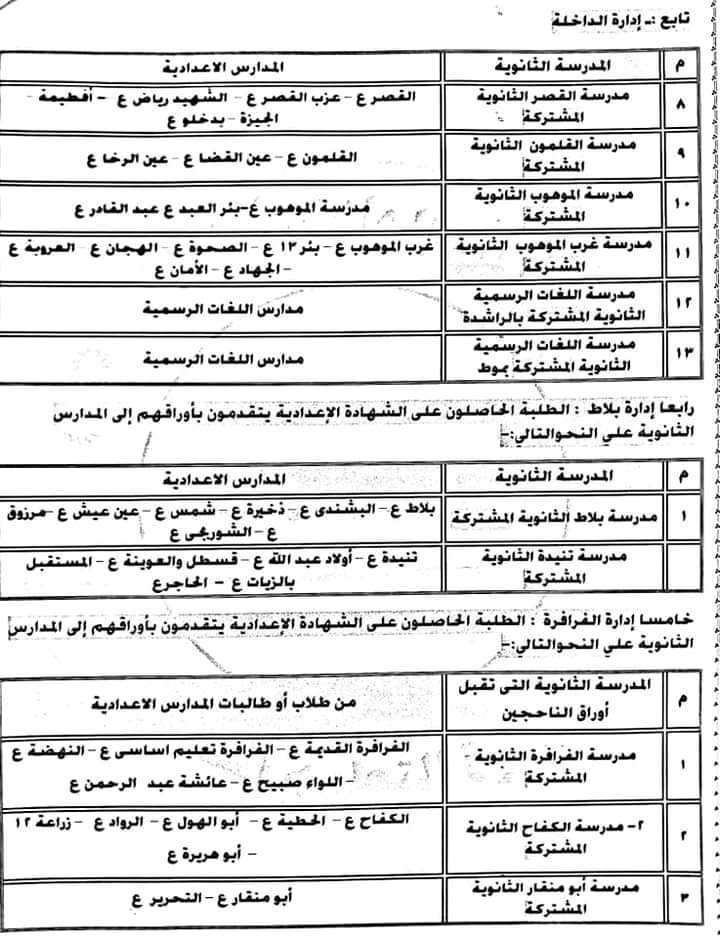 تابع :ـ إدارة الداخلة
م
المدرسة الثانوية
المدارس الاعدادية
٨
مدرسة القصر الثانوية
المشتركة
القصر ع – عزب القصر ع – الشهيد رياض ع – أفطيمة –
الجيزة – بدخلو ع
٩
مدرسة القلمون الثانوية
المشتركة
القلمون ع – عين القضا ع – عين الرخا ع
١٠
مدرسة الموهوب الثانوية
المشتركة
مدرسة الموهوب ع–بئر العبد ع عبد القادر ع
١١
مدرسة غرب الموهوب الثانوية
المشتركة
غرب الموهوب ع – بئر ١٢ ع – الصحوة ع – الهجان ع – العروبة ع
– الجهاد ع – الأمان ع
١٢
مدرسة اللغات الرسمية
الثانوية المشتركة بالراشدة
مدارس اللغات الرسمية
١٣
مدرسة اللغات الرسمية
الثانوية المشتركة بموط
مدارس اللغات الرسمية
رابعا إدارة بلاط : الطلبة الحاصلون على الشهادة الإعدادية يتقدمون بأوراقهم إلى المدارس
الثانوية علي النحوالتالي:-
م
المدرسة الثانوية
المدارس الاعدادية
١
مدرسة بلاط الثانوية المشتركة
بلاط ع – البشندى ع – ذخيرة ع – شمس ع – عين عيش ع – مرزوق
ع – الشوربجى ع
مدرسة تنيدة الثانوية
المشتركة
تنيدة ع – أولاد عبد الله ع – قسطل والعوينة ع – المستقبل
بالزيات ع – الحاجرع
خامسا إدارة الفرافرة : الطلبة الحاصلون على الشهادة الإعدادية يتقدمون بأوراقهم إلى المدارس
الثانوية علي النحوالتالي:-
م
المدرسة الثانوية التى تقبل
أوراق الناجحين
من طلاب أو طالبات المدارس الاعدادية
١
مدرسة الفرافرة الثانوية
المشتركة
الفرافرة القديمة ع – الفرافرة تعليم اساسى ع – النهضة ع
– اللواء صبيح ع – عائشة عبد الرحمن ع
٢
٢- مدرسة الكفاح الثانوية
المشتركة
الكفاح ع – الحطية ع – أبو الهول ع – الرواد ع – زراعة ١٢
– أبو هريرة ع
٣
مدرسة أبو منقار الثانوية
المشتركة
أبو منقار ع – التحرير ع